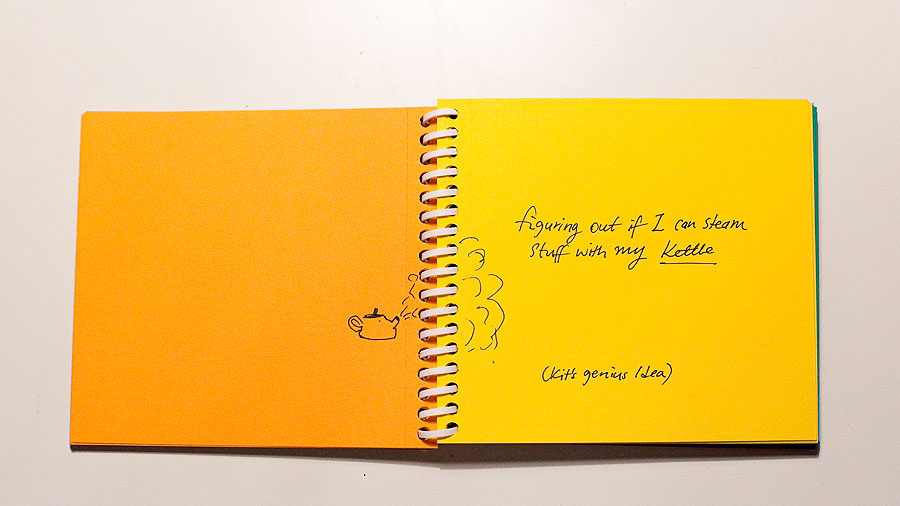 figuring out if I can steam
stuff with my Kettle
(Kit's genius Idea)